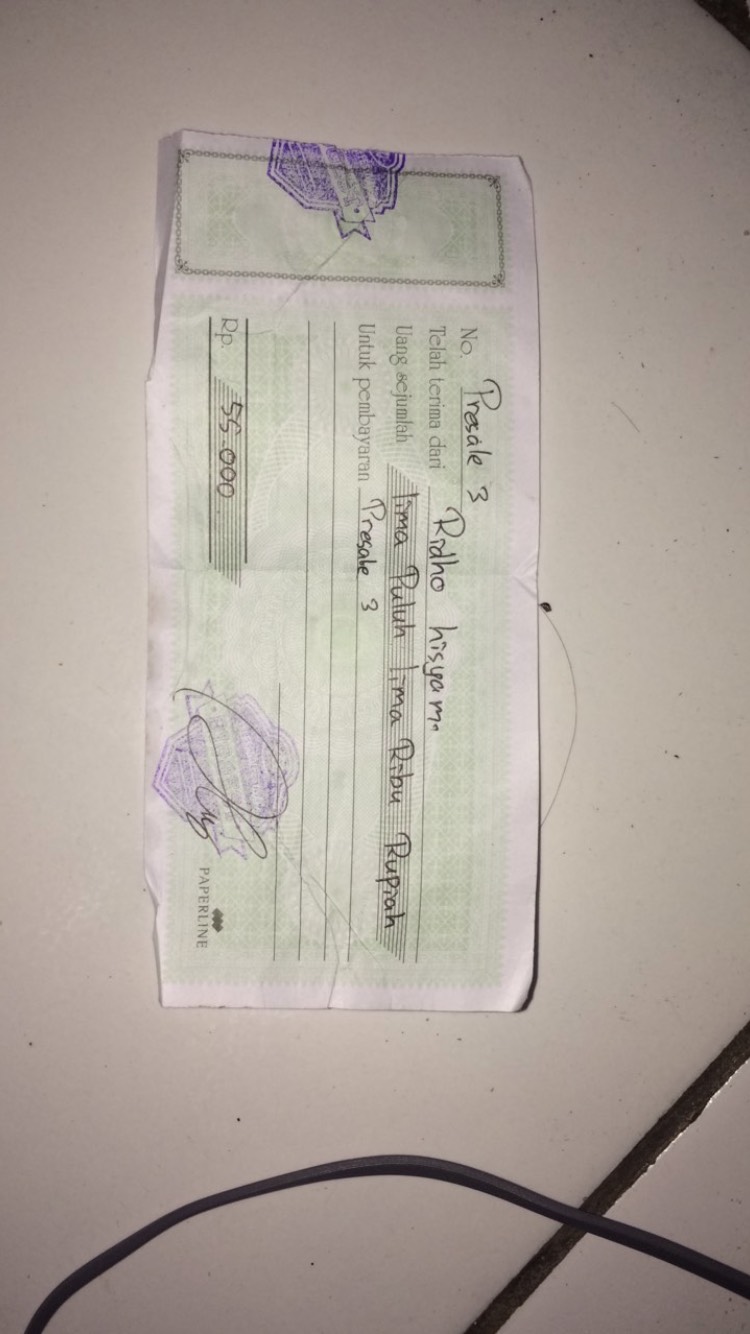 No. Presale 3
Telah terima dari Ridho hisyam.
Uang sejumlah lima Puluh lima Ribu Rupiah
Untuk pembayaran Presale 3
Rp. 55.000
PAPERLINE